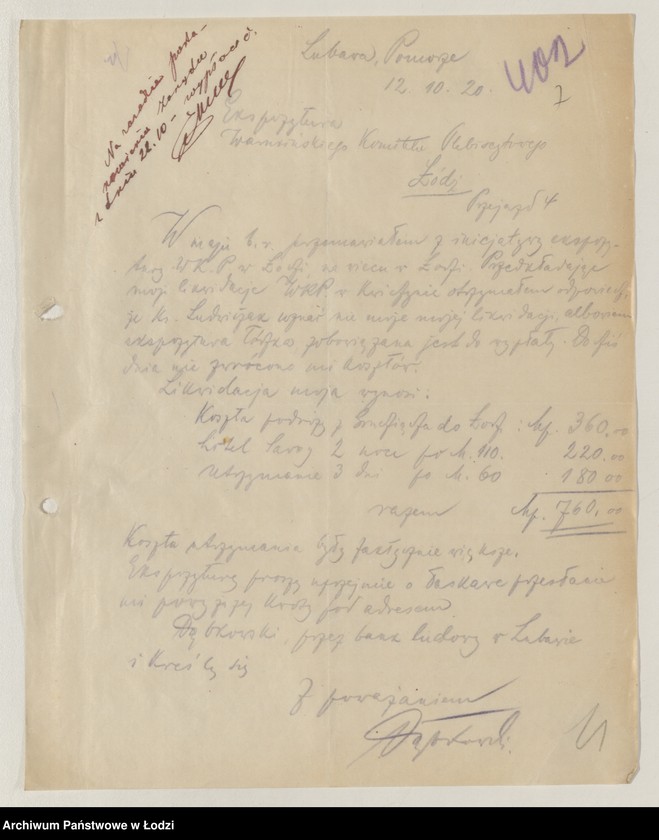 Na zasadzie posta-
nowienia Zarządu
z dnia 22.10 - wypłacić.
Lubawa, Pomorze
12 10. 20.
402
7
Ekspozytura
Warmińskiego Komitetu Plebiscytowego
Łódź
Przejazd 4
W maju b. r. przemawiałem z inicjatywy ekspozy-
tury W.K.P. w Łodzi na wiecu w Łodzi. Przedkładając
moją likwidację WKP. w Kwidzynie otrzymałem odpowiedź,
że Ks. Ludwiczak uznać nie może mojej likwidacji, albowiem
ekspozytura Łódzka zobowiązana jest do wypłaty. Do dziś
dnia nie zwrócono mi kosztów.
Likwidacja moja wynosi:
Koszta podróży z Grudziądza do Łodzi: Mp. 360,00
hotel Savoy 2 noce po M. 110. 220.00
utrzymanie 3 dni po M. 60 180 00
razem Mp. 760,00
Koszta utrzymania były faktycznie większe.
Ekspozyturę proszę uprzejmie o łaskawe przesłanie
mi powyższej kwoty pod adresem
Dąbkowski, przez bank ludowy w Lubawie
i kreślę się
Z poważaniem
Dąbkowski.
Archiwum Państwowe w Łodzi